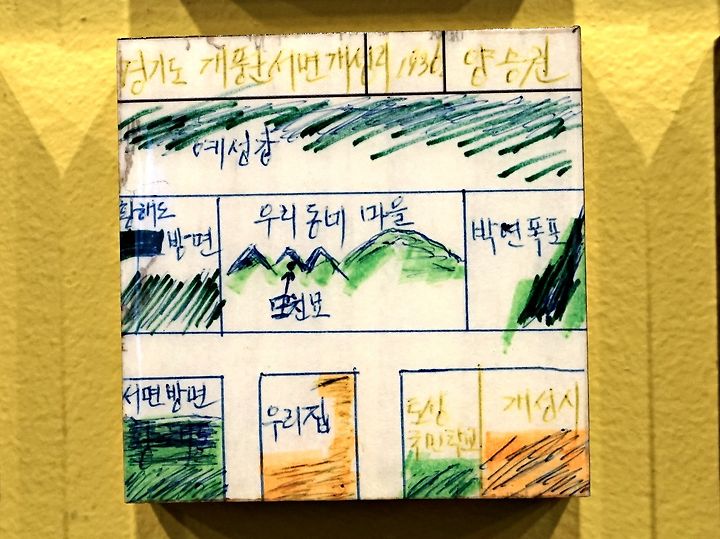 경기도 개풍군 서면 개성리 1936. 양승권
예성강
황해도
방면
우리 동네 마을
모친묘
박연폭포
서면방면
우리집
국민학교
개성시